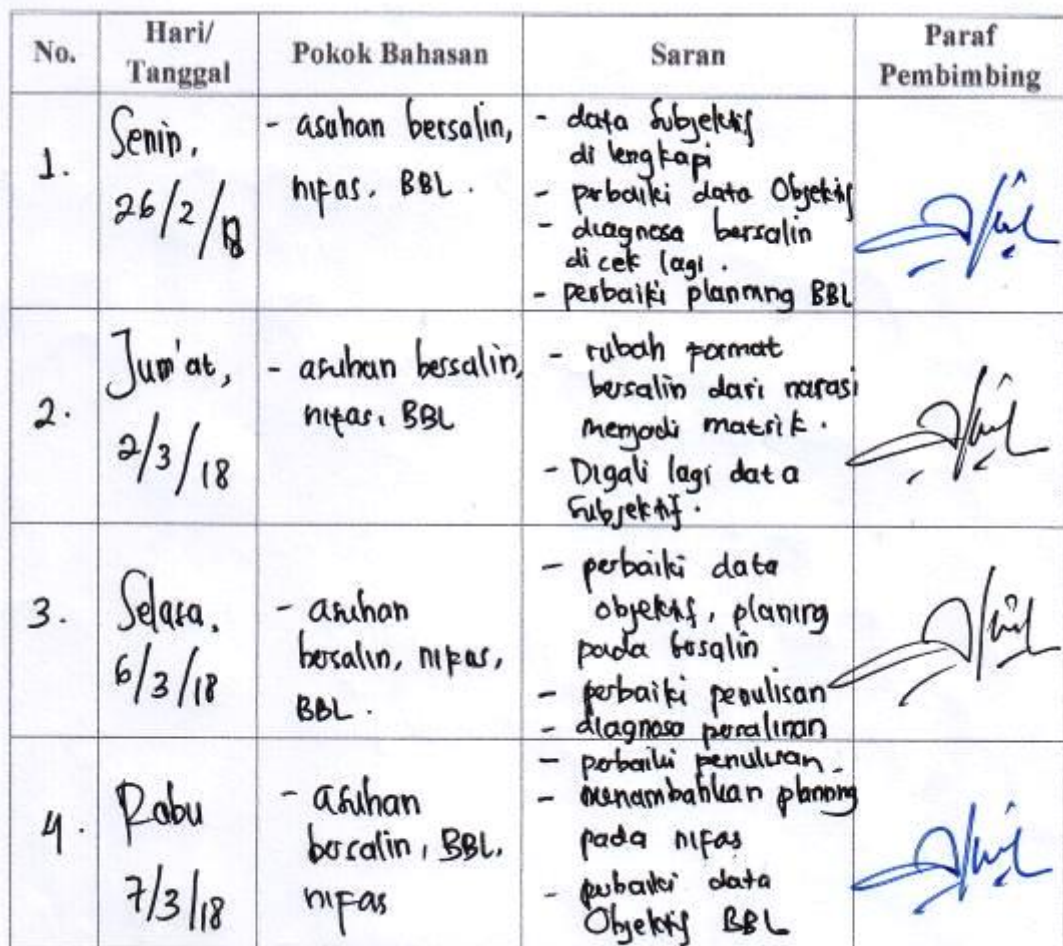 No. Hari/ Tanggal Pokok Bahasan Saran Paraf Pembimbing
1.
Senin,
26/2/18
- asuhan bersalin,
nifas. BBL.
- data Subjektif
di lengkapi
- perbaiki data Objektif
- diagnosa bersalin
di cek lagi.
- perbaiki planning BBL
2.
Jum'at,
2/3/18
- asuhan bersalin,
nifas, BBL
- rubah format
bersalin dari narasi
menjadi matrik.
- Digali lagi data
Subjektif.
3.
Selasa,
6/3/18
- asuhan
bersalin, nifas,
BBL.
- perbaiki data
objektif, planing
pada bersalin
- perbaiki penulisan
- diagnosa persalinan
4.
Rabu
7/3/18
- asuhan
bersalin, BBL,
nifas
- perbaiki penulisan.
- menambahkan planning
pada nifas
- perbaiki data
Objektif BBL